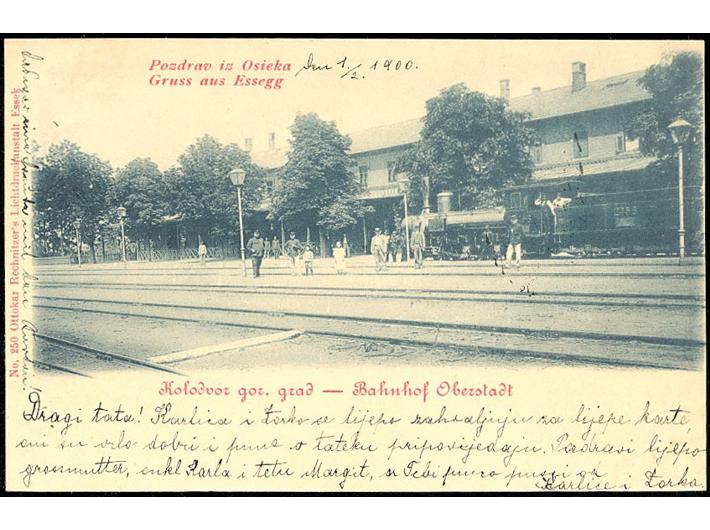 Pozdrav iz Osieka
Gruss aus Essegg
Den 1/2. 1900.
No. 250 Ottokar Rechnitzer's Lichtdruckanstalt Essek
Kolodvor gor. grad — Bahnhof Oberstadt
Dragi tata! Karlica i Zorko se lijepo zahvaljuju za lijepe karte,
oni su vrlo dobri i puno o tateku pripovijedaju. Pozdravi lijepo
grossmutter, onkl Karla i tetu Margit, a Tebi puno pussi od
Karlice i Zorka.